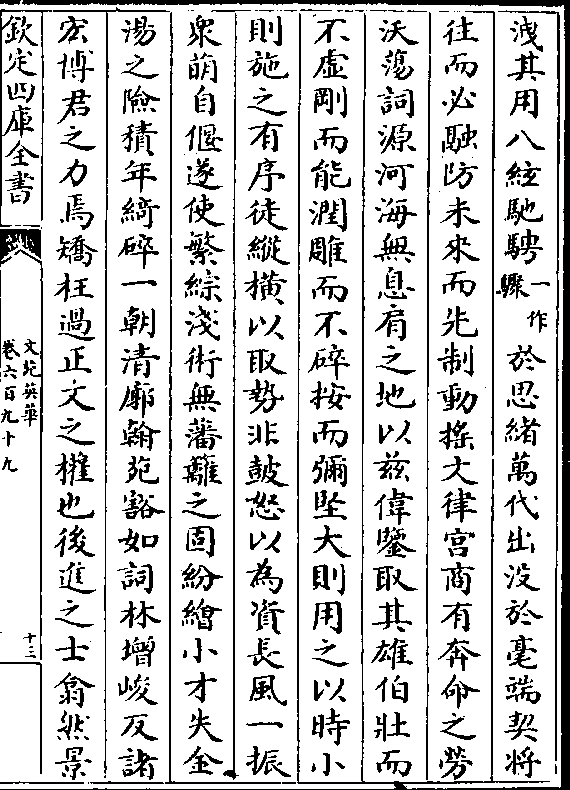 洩其用八紘馳騁一作驟於思緒萬代出没於毫端契將
往而必融防未來而先制動摇文律宫商有奔命之勞
沃蕩詞源河海無息肩之地以兹偉鑒取其雄伯壯而
不虚剛而能潤雕而不碎按而彌堅大則用之以時小
則施之有序徒縱横以取勢非鼓怒以為資長風一振
衆萌自偃遂使繁綜淺術無藩籬之固紛繪小才失金
湯之險積年綺碎一朝清廓翰苑豁如詞林增峻反諸
宏博君之力焉矯枉過正文之權也後進之士翕然景
欽定四庫全書
文苑英華
卷六百九十九
十三